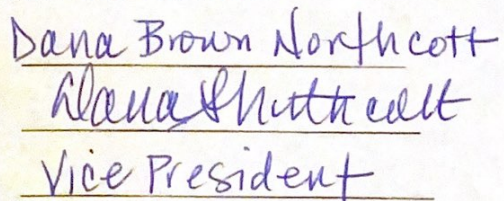 Dana Brown Northcott
Dana Northcott
Vice President